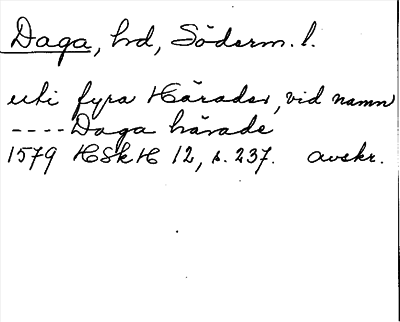 Daga, hd, Söderm. l.
uti fyra Härader, vid namn
---- Daga härade
1579 HSkH 12, s. 237. avskr.